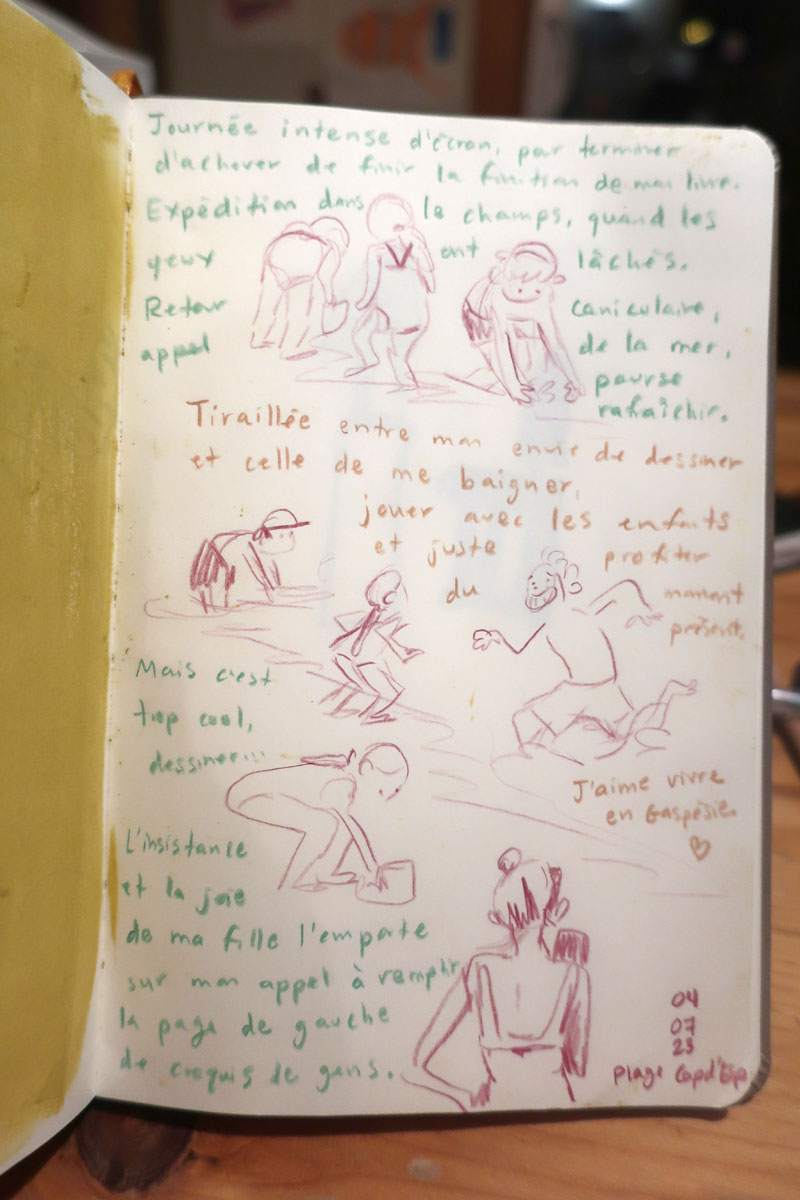 Journée intense d'écran, par terminer
d'achever de finir la finition de mon livre.
Expédition dans le champs, quand les
yeux ont lâchés.
Retour caniculaire,
appel de la mer,
pour se
rafraîchir.
Tiraillée entre mon envie de dessiner
et celle de me baigner,
jouer avec les enfants
et juste profiter
du moment
présent.
Mais c'est
trop cool,
dessiner...
J'aime vivre
en Gaspésie.
L'insistance
et la joie
de ma fille l'emporte
sur mon appel à remplir
la page de gauche
de croquis de gens.
04
07
23
plage Cap d'Esp